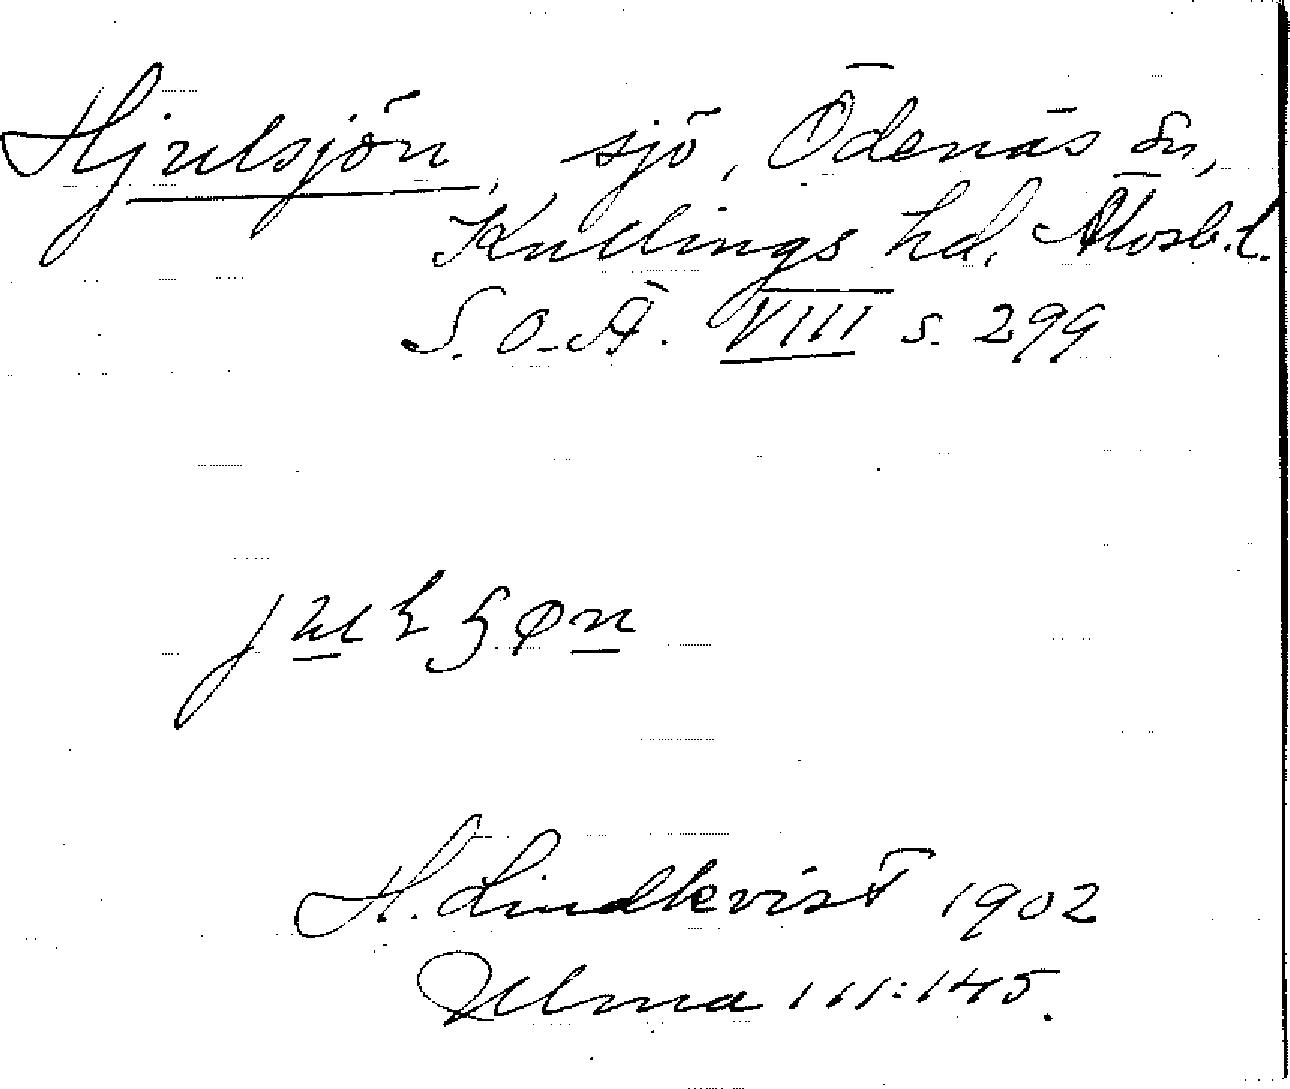 Hjulsjön, sjö, Ödenäs sn,
Kullings hd, Älvsb.l.
S.O.Ä. VIII s. 299
H. Lindkvist 1902
Ulma 111:145.